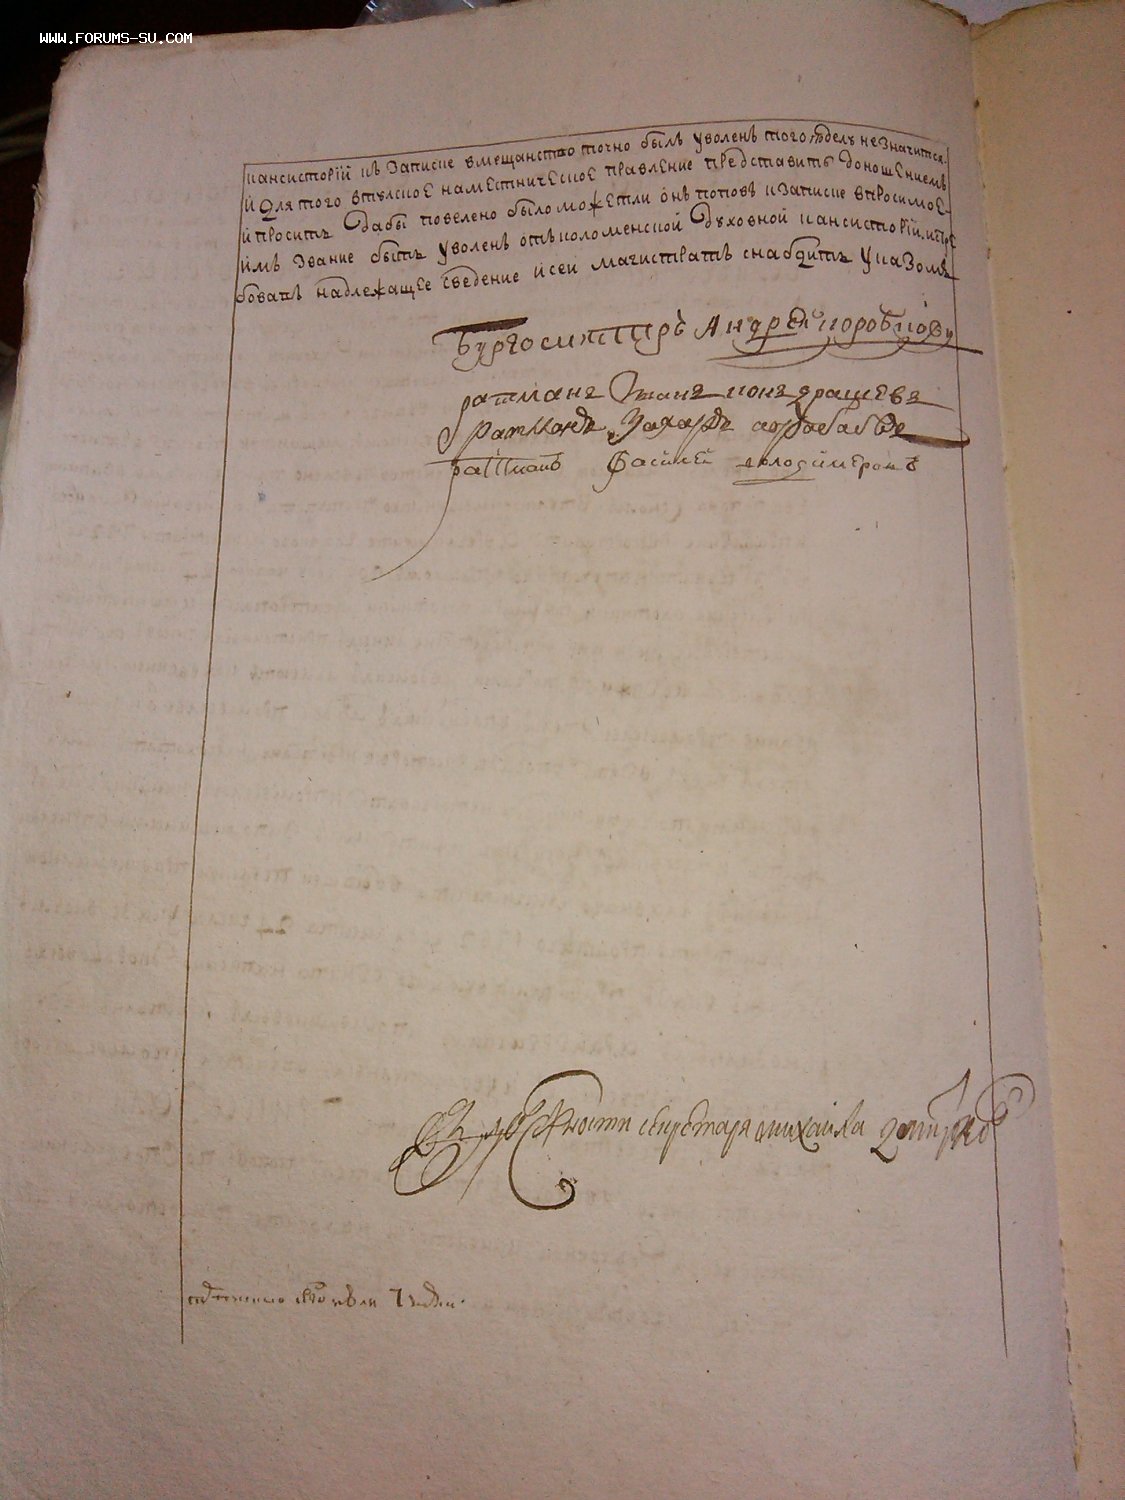 WWW.FORUMS-SU.COM
кансисторїи къ записке вмещанство точно былъ уволенъ того здѣлъ незначится
и для того втулское наместническое правление представить доношениемъ
и просить дабы повелено было можетли онъ поповъ к записке впросимое
имъ звание быть уволенъ отъ коломенской духовной кансисторїи
бовать надлежащее сведение и сей магистратъ снабдить указомъ
Бургомистръ Андрей коробков
ратманъ Иванъ кондрашевъ
Ратманъ Захаръ
ратманъ Василей володимеровъ
В должности секретаря михайла